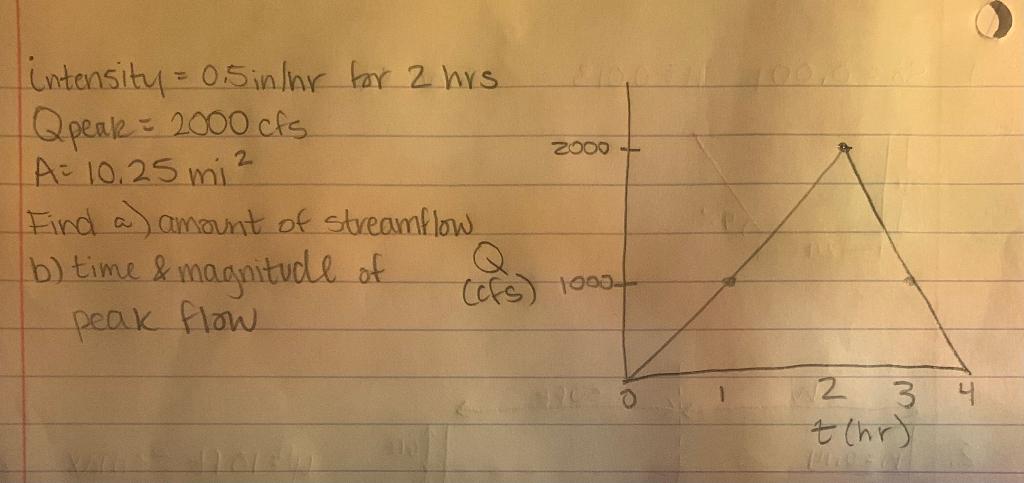 intensity = 0.5in/hr for 2 hrs
Qpeak = 2000 cfs
A = 10.25 mi²
Find a) amount of streamflow
b) time & magnitude of
peak flow
Q
(cfs)
2000
1000
0 1 2 3 4
t (hr)